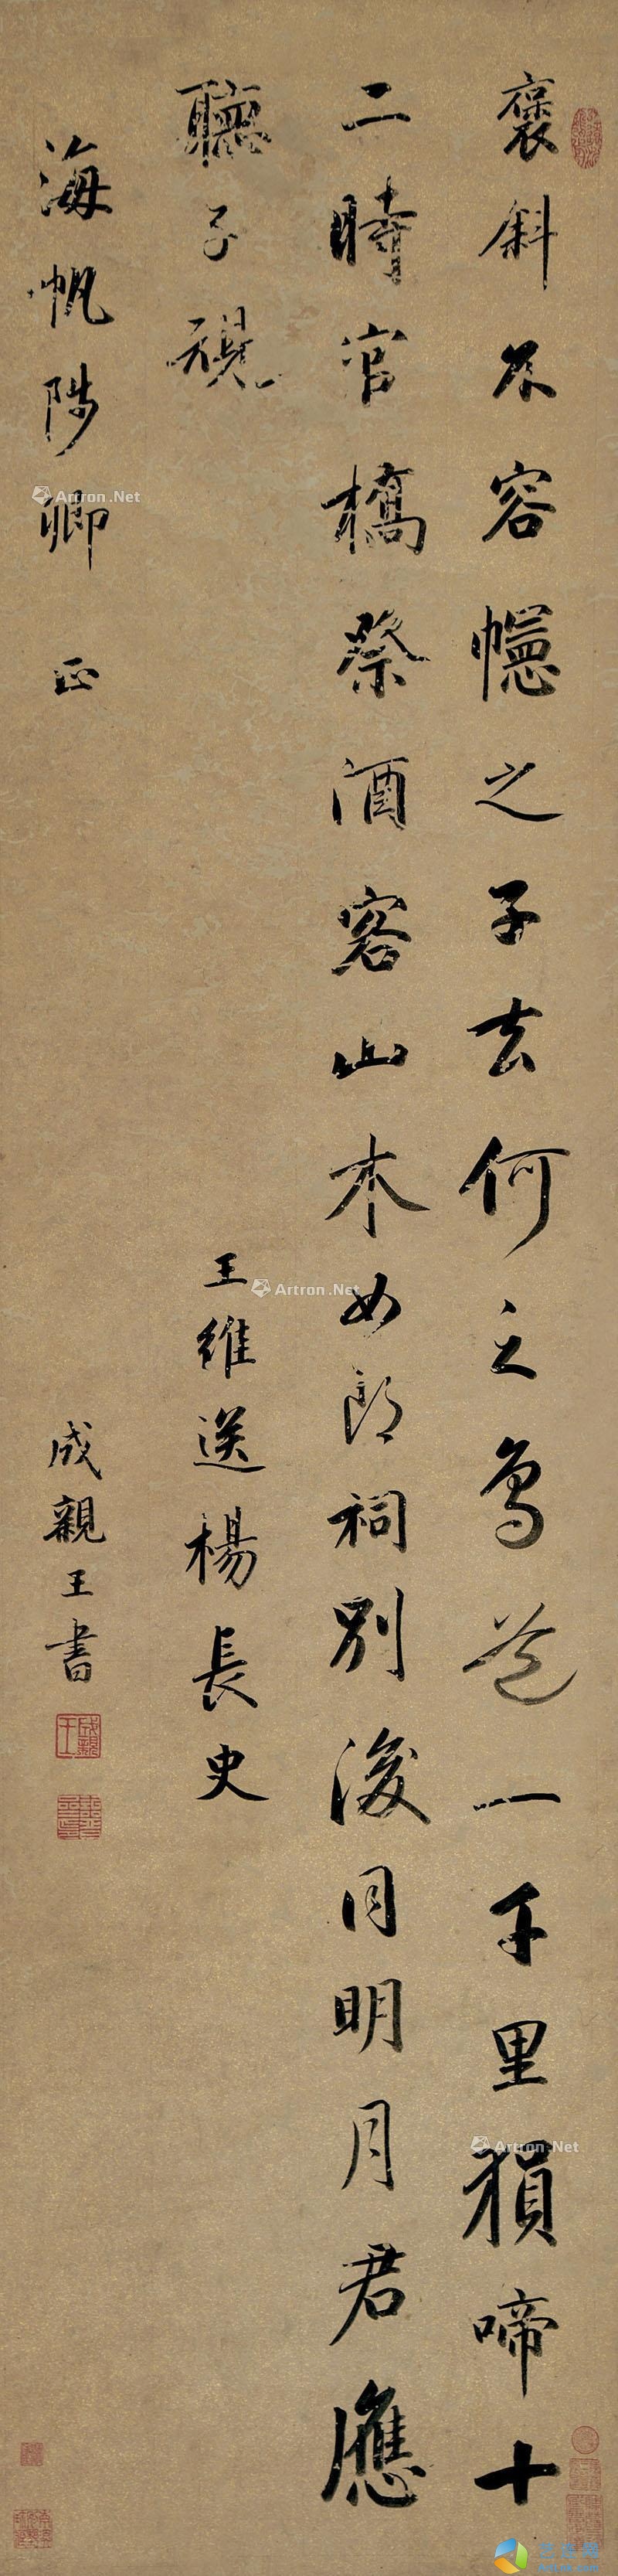 褒斜不容幰之子去何之鳥道一千里猿啼十
二時官橋祭酒客山木女郎祠別後同明月君應
聽子規
王維送楊長史
海帆陟卿 正
成親王書
成親王
Artron.Net
Artron.Net
Artron.Net